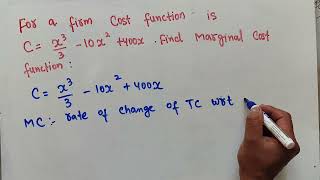 For a firm Cost function is
C = x³/3 - 10x² + 400x . Find Marginal Cost
function :
C = x³/3 - 10x² + 400x
MC :- rate of change of TC wrt